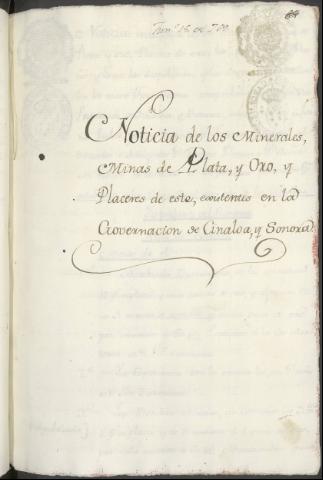 Noticia de los Minerales,
Minas de Plata, y Oro, y
Placeres de este, existentes en la
Governacion de Cinaloa, y Sonora.